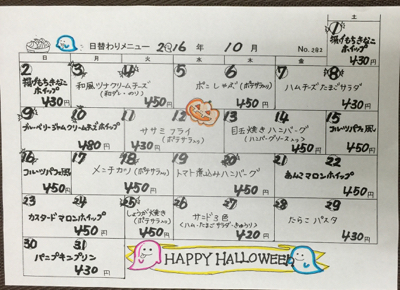 日替わりメニュー 2016 年 10 月 No.283
日 月 火 水 木 金 土
1
揚げもちきなこ
ホイップ
430円
2 3 4 5 6 7 8
揚げもちきなこ
ホイップ
430円
和風ツナクリームチーズ
450円
450円
ハムチーズたまごサラダ
450円
9 10 11 12 13 14 15
480円
430円
ササミフライ
(ポテサラ入り)
450円
目玉焼きハンバーグ
(ハンバーグソース入り)
450円
450円
16 17 18 19 20 21 22
450円
メンチカツ(ポテサラ入り)
450円
トマト煮込みハンバーグ
450円
あんこマロンホイップ
450円
23 24 25 26 27 28 29
カスタードマロンホイップ
450円
しょうが焼き
(ポテサラ入り)
450円
サンド3色
(ハム・たまごサラダ・きゅうり)
420円
たらこパスタ
430円
30 31
パンプキンプリン
430円
HAPPY HALLOWEEN